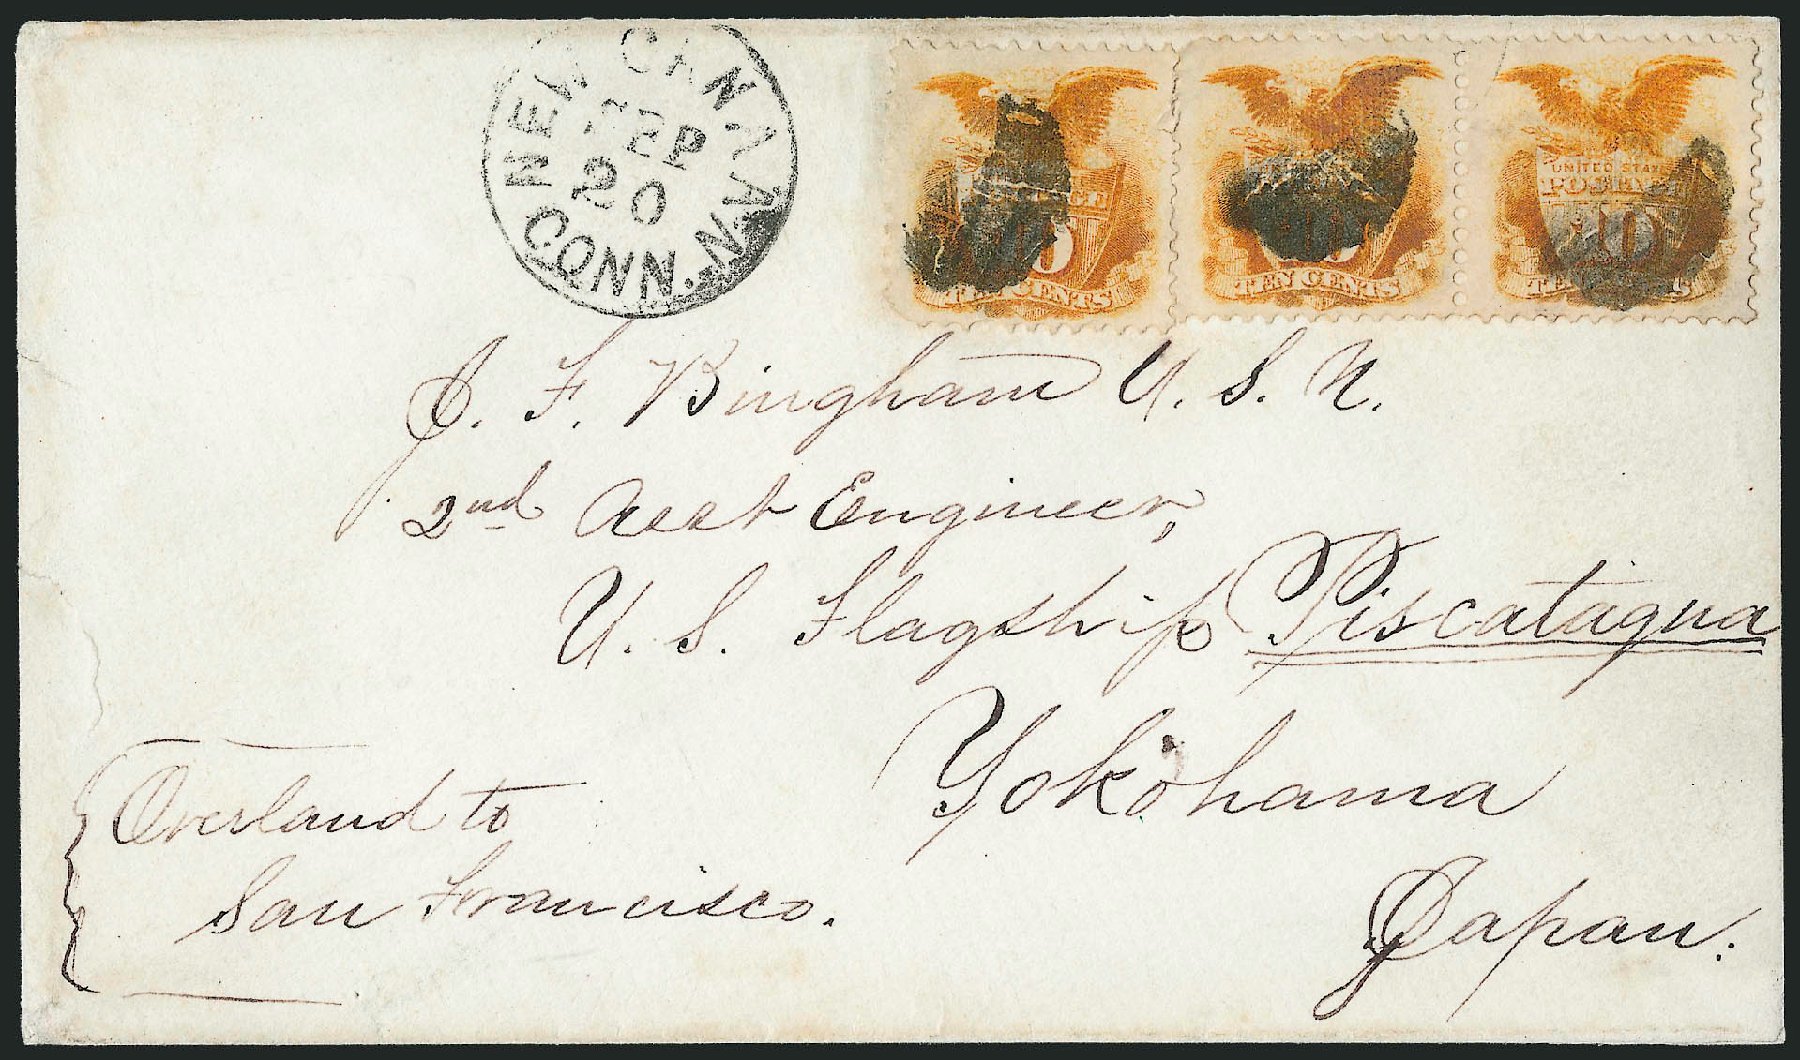 NEW CANAAN CONN.
SEP
20
TEN CENTS
TEN CENTS
UNITED STATES
POSTAGE
10
J. F. Bingham U. S. N.
2nd Asst Engineer,
U. S. Flagship Piscataqua
Yokohama
Japan.
Overland to
San Francisco.